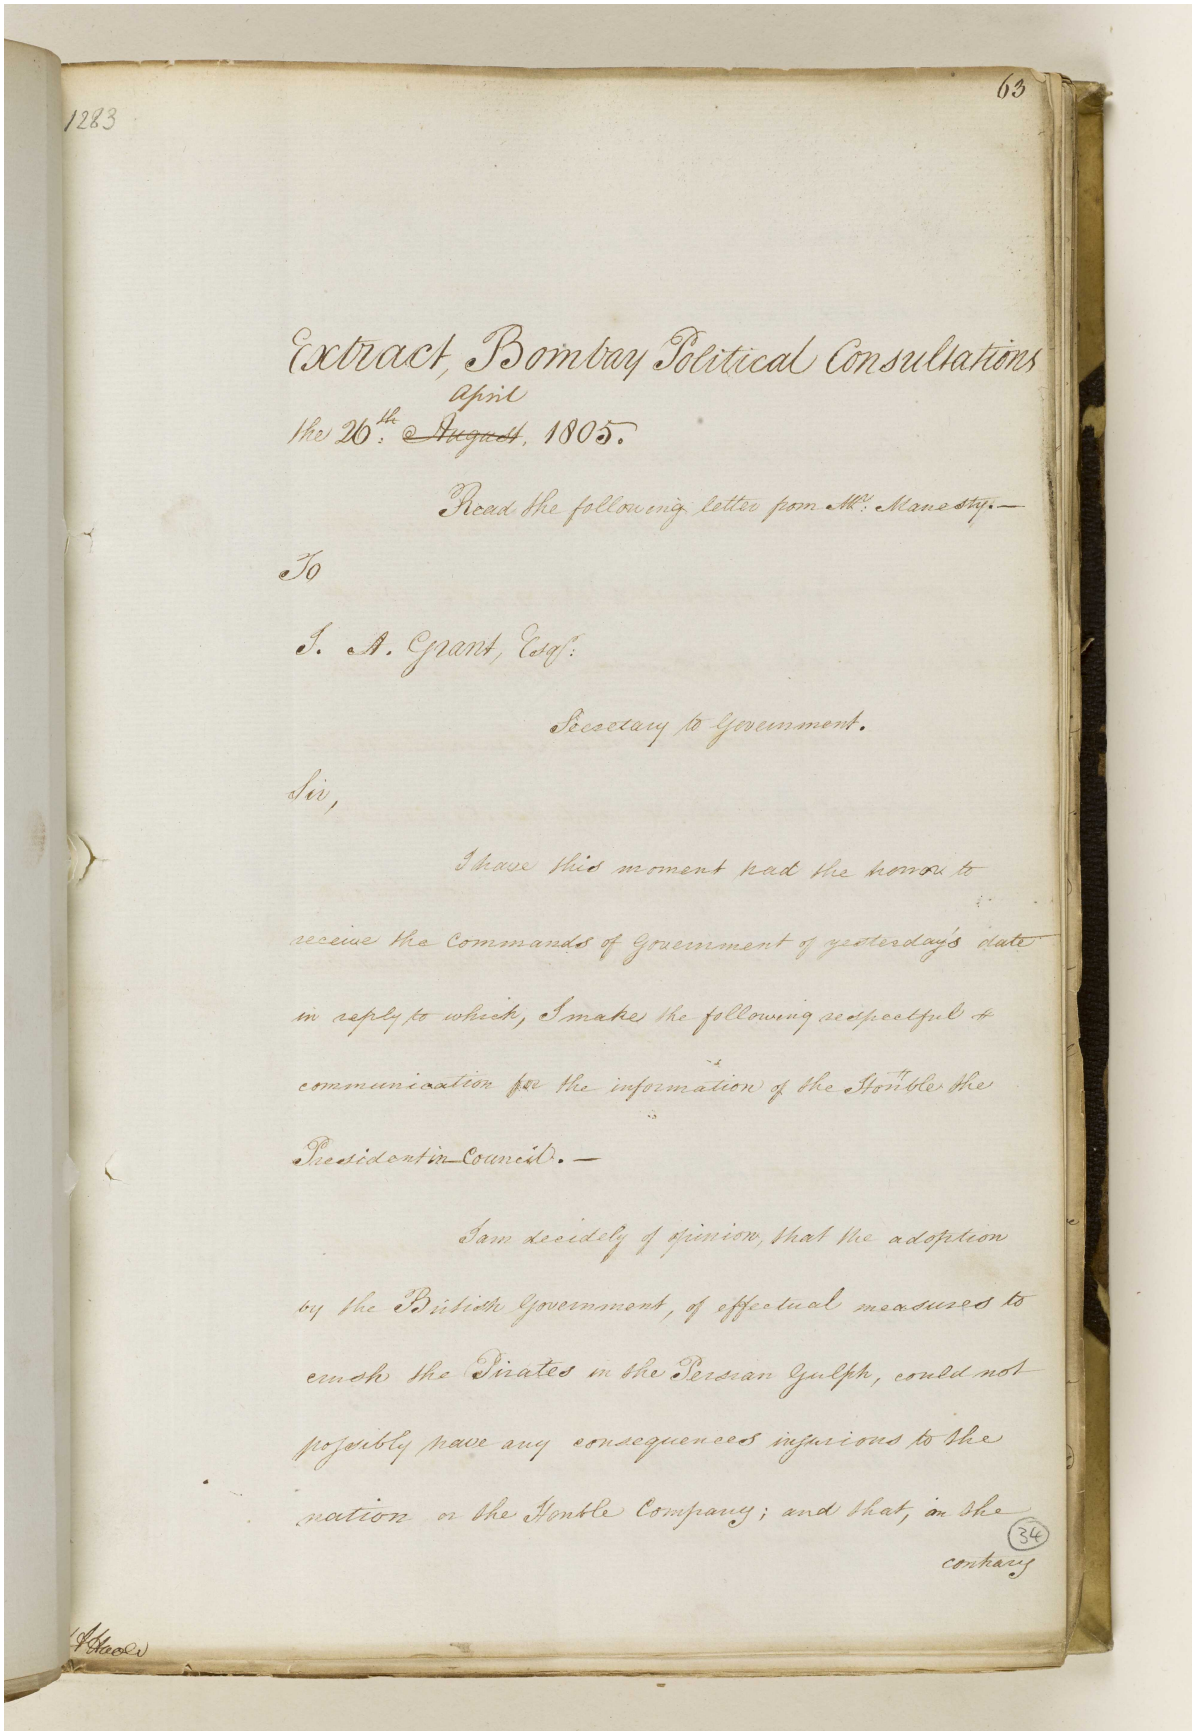 63
1283
Extract, Bombay Political Consultations
April
the 26th: August, 1805.
Read the following letter from Mr: Manesty.—
To
J. A. Grant, Esqr:
Secretary to Government.
Sir,
I have this moment had the honor to
receive the Commands of Government of yesterday's date
in reply to which, I make the following respectful
communication for the information of the Honble the
President in Council.—
I am decidely of opinion, that the adoption
by the British Government, of effectual measures to
crush the Pirates in the Persian Gulph, could not
possibly have any consequences injurious to the
nation or the Honble Company; and that, on the
34
contrary